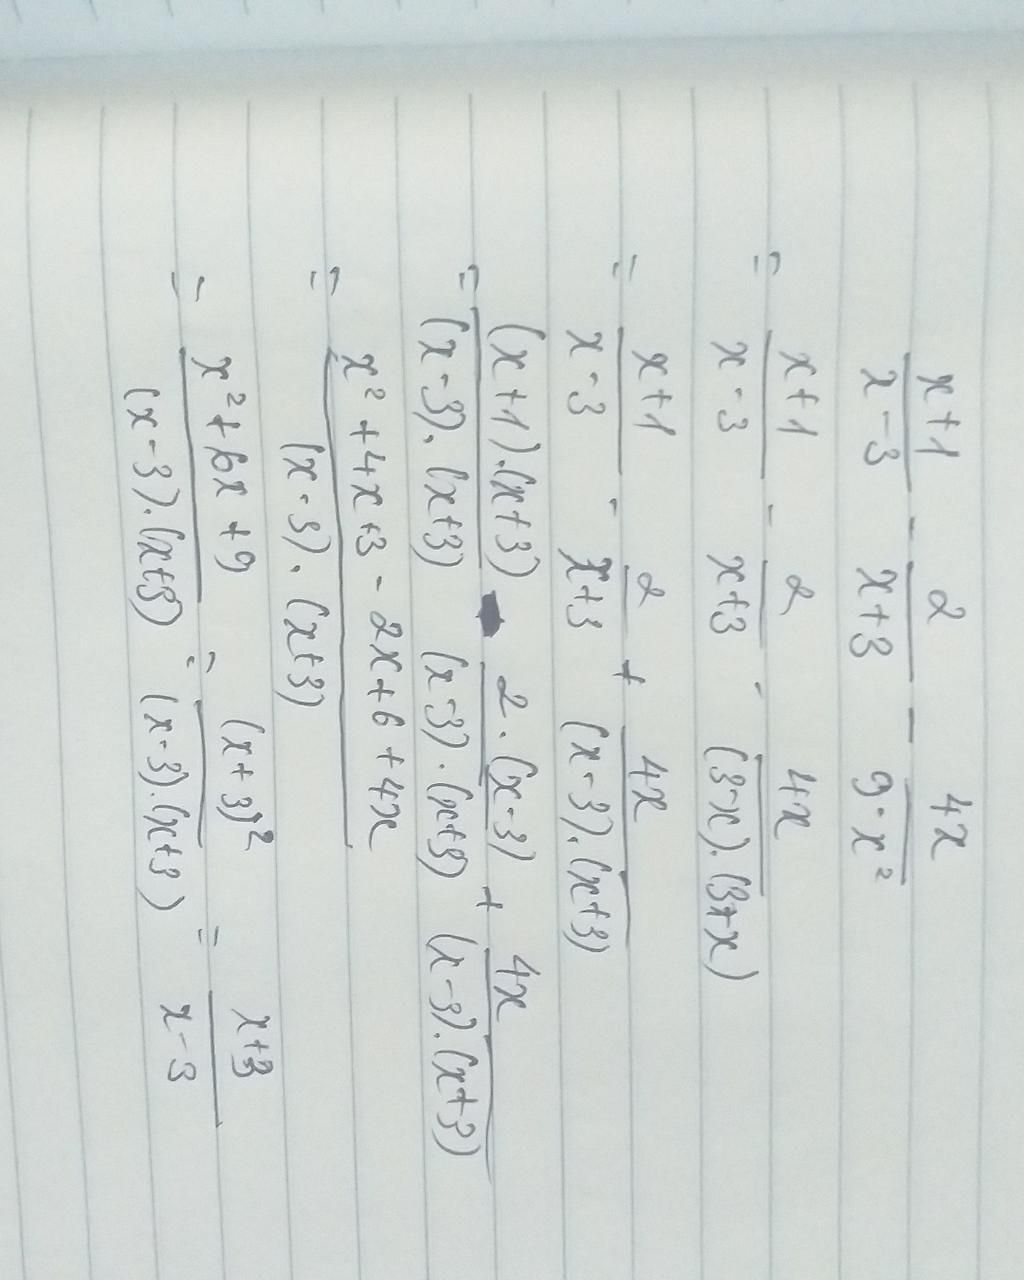 \frac{x+1}{x-3} - \frac{2}{x+3} - \frac{4x}{9-x^2}
= \frac{x+1}{x-3} - \frac{2}{x+3} - \frac{4x}{(3-x).(3+x)}
= \frac{x+1}{x-3} - \frac{2}{x+3} + \frac{4x}{(x-3).(x+3)}
= \frac{(x+1).(x+3)}{(x-3).(x+3)} - \frac{2.(x-3)}{(x-3).(x+3)} + \frac{4x}{(x-3).(x+3)}
= \frac{x^2+4x+3-2x+6+4x}{(x-3).(x+3)}
= \frac{x^2+6x+9}{(x-3).(x+3)} = \frac{(x+3)^2}{(x-3).(x+3)} = \frac{x+3}{x-3}